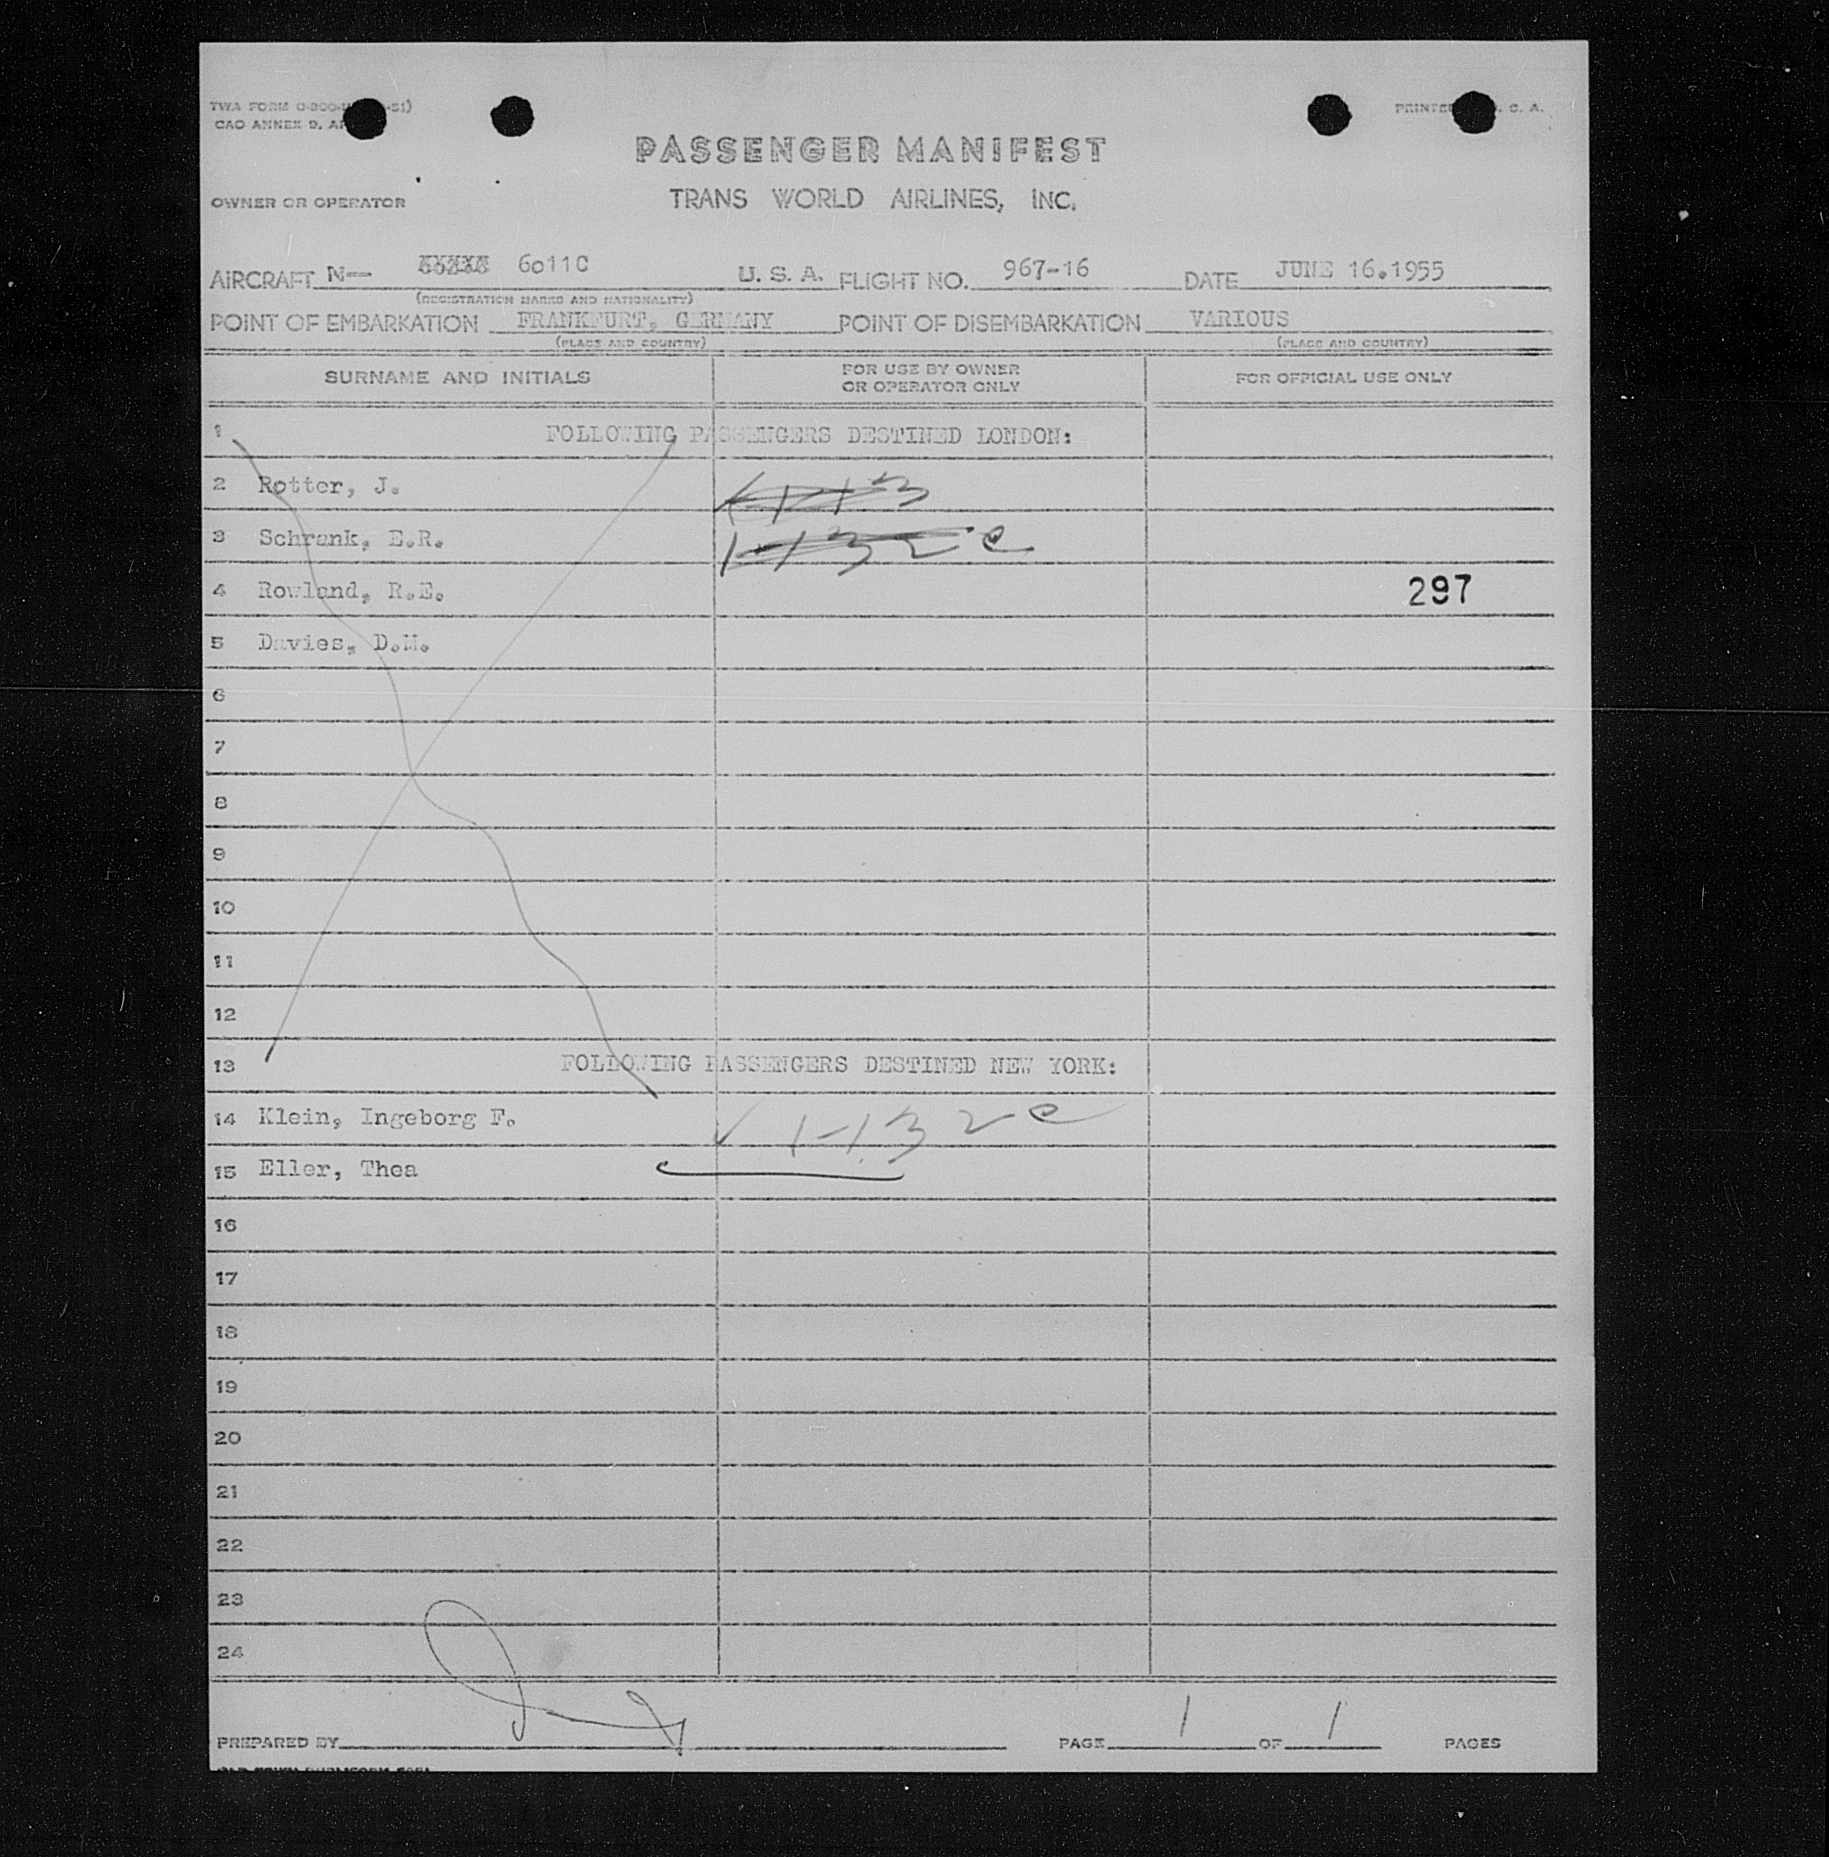 TWA FORM
CAO ANNEX 9, A
PRINTE
. S. A.
PASSENGER MANIFEST
OWNER OR OPERATOR
TRANS WORLD AIRLINES, INC.
AIRCRAFT N— 6011C U. S. A. FLIGHT NO. 967-16 DATE JUNE 16.1955
(REGISTRATION MARKS AND NATIONALITY)
POINT OF EMBARKATION FRANKFURT, GERMANY POINT OF DISEMBARKATION VARIOUS
(PLACE AND COUNTRY) (PLACE AND COUNTRY)
SURNAME AND INITIALS
FOR USE BY OWNER
OR OPERATOR ONLY
FOR OFFICIAL USE ONLY
1 FOLLOWING PASSENGERS DESTINED LONDON:
2 Rotter, J.
3 Schrank, E.R.
4 Rowland, R.E. 297
5 Davies, D.M.
6
7
8
9
10
11
12
13 FOLLOWING PASSENGERS DESTINED NEW YORK:
14 Klein, Ingeborg F.
15 Eller, Thea
16
17
18
19
20
21
22
23
24
PREPARED BY PAGE 1 OF 1 PAGES